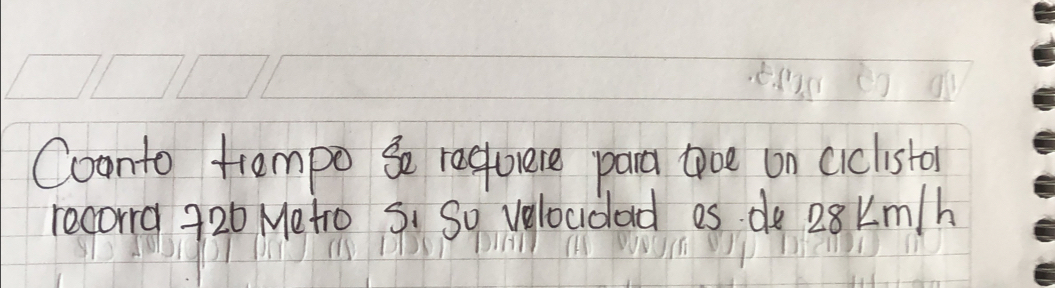 Cuanto tiempo se requiere para que un ciclista
recorra 720 Metro si su velocidad es de 28 Km/h